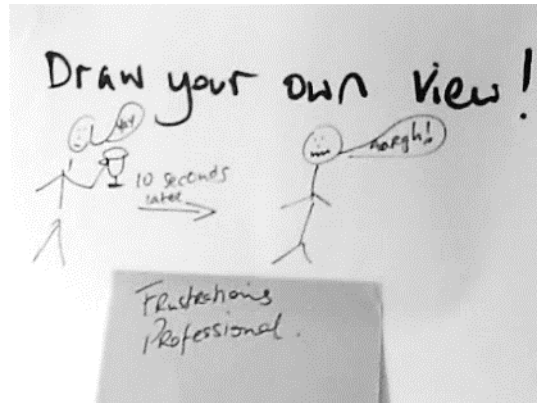 Draw your own view!
Yay
10 seconds
later
aargh!!
Frustrations
Professional.